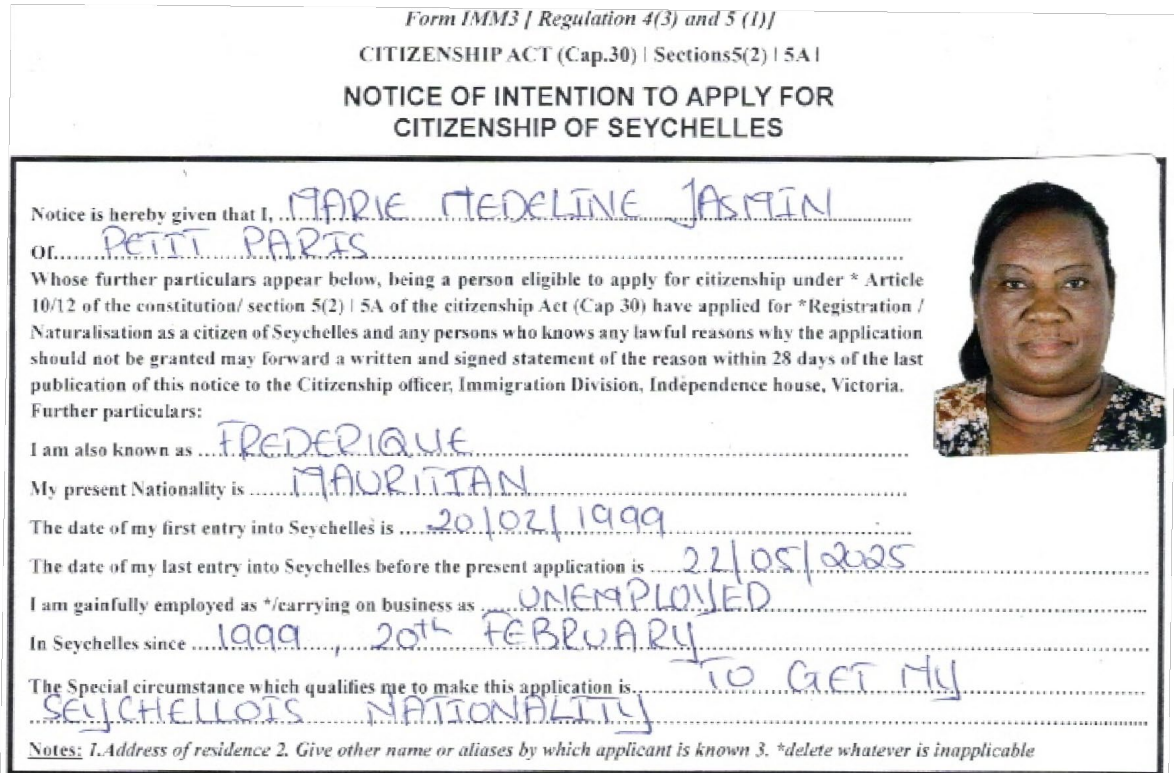 Form IMM3 [ Regulation 4(3) and 5 (1)]
CITIZENSHIP ACT (Cap.30) | Sections5(2) | 5A |
NOTICE OF INTENTION TO APPLY FOR
CITIZENSHIP OF SEYCHELLES
Notice is hereby given that I, MARIE MEDELINE JASMIN
Of PETIT PARIS
Whose further particulars appear below, being a person eligible to apply for citizenship under * Article
10/12 of the constitution/ section 5(2) | 5A of the citizenship Act (Cap 30) have applied for *Registration /
Naturalisation as a citizen of Seychelles and any persons who knows any lawful reasons why the application
should not be granted may forward a written and signed statement of the reason within 28 days of the last
publication of this notice to the Citizenship officer, Immigration Division, Independence house, Victoria.
Further particulars:
I am also known as FREDERIQUE
My present Nationality is MAURITIAN
The date of my first entry into Seychelles is 20/02/1999
The date of my last entry into Seychelles before the present application is 22/05/2025
I am gainfully employed as */carrying on business as UNEMPLOYED
In Seychelles since 1999, 20th FEBRUARY
The Special circumstance which qualifies me to make this application is TO GET MY
SEYCHELLOIS NATIONALITY
Notes: 1.Address of residence 2. Give other name or aliases by which applicant is known 3. *delete whatever is inapplicable